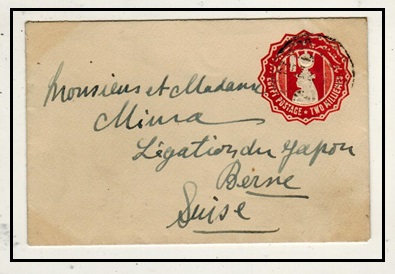 EGYPT POSTAGE • TWO MILLIEMES
Monsieur et Madame
Miura
Légation du Japon
Berne
Suisse